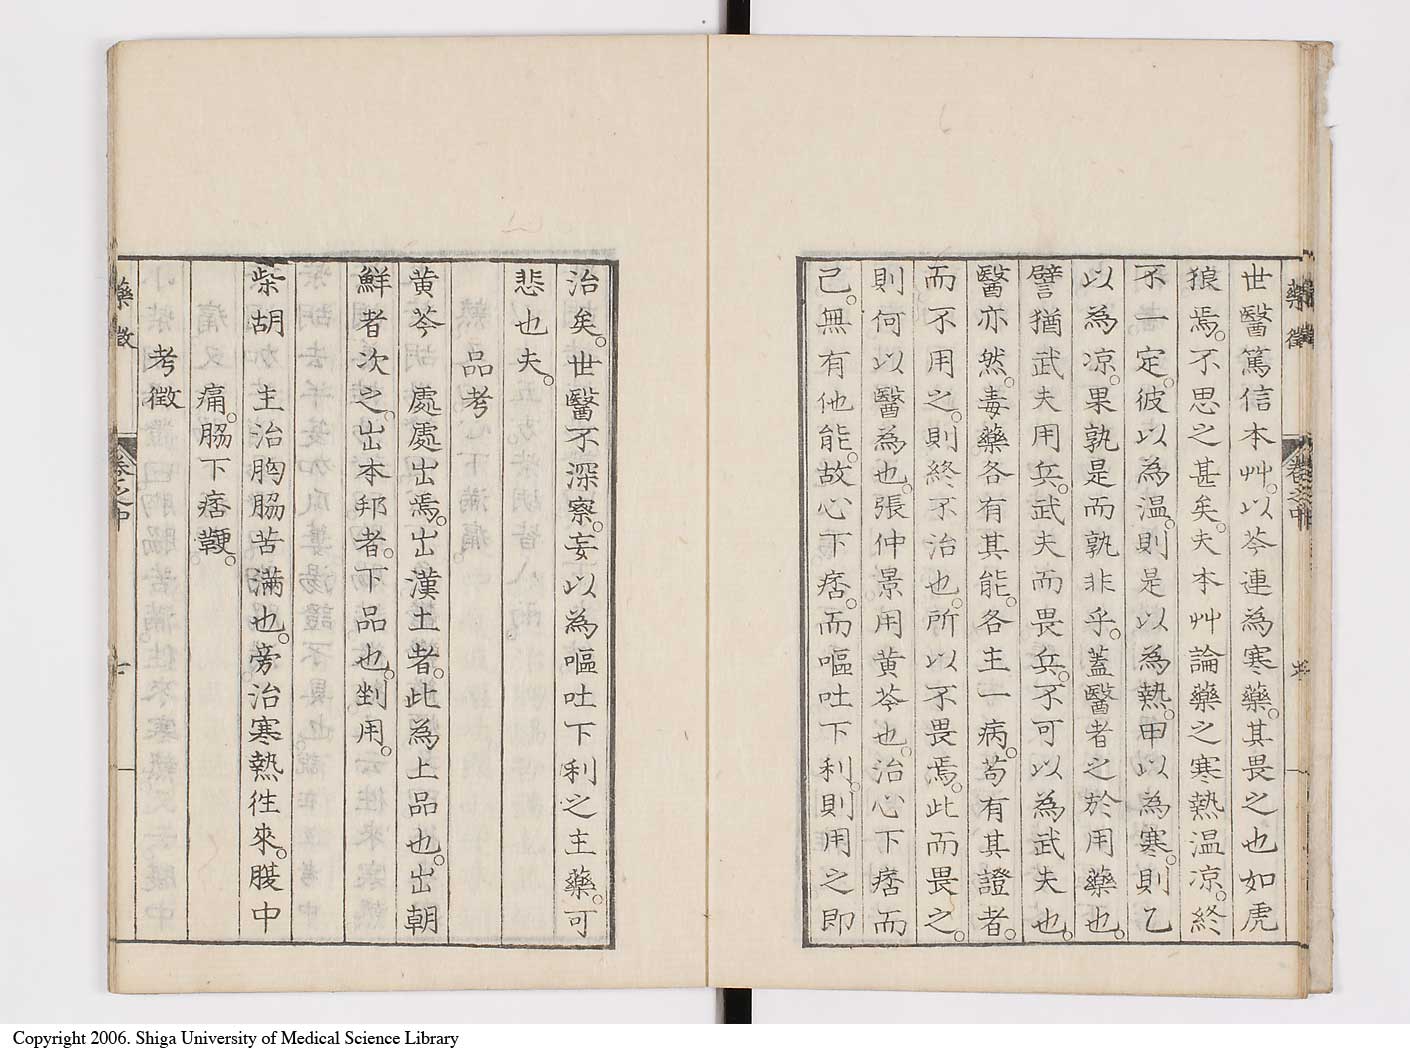 藥徵
卷之中
世醫篤信本艸。以芩連為寒藥。其畏之也如虎
狼焉。不思之甚矣。夫本艸論藥之寒熱温凉。終
不一定。彼以為温。則是以為熱。甲以為寒。則乙
以為凉。果孰是而孰非乎。蓋醫者之於用藥也。
譬猶武夫用兵。武夫而畏兵。不可以為武夫也。
醫亦然。毒藥各有其能。各主一病。苟有其證者。
而不用之。則終不治也。所以不畏焉。此而畏之。
則何以醫為也。張仲景用黄芩也。治心下痞而
已。無有他能。故心下痞。而嘔吐下利。則用之即
治矣。世醫不深察。妄以為嘔吐下利之主藥。可
悲也夫。
品考
黄芩 處處出焉。出漢土者。此為上品也。出朝
鮮者次之。出本邦者。下品也。剉用。
柴胡 主治胸脇苦滿也。旁治寒熱徃來。腹中
痛。脇下痞鞕。
考徵
藥徵
卷之中
七
Copyright 2006. Shiga University of Medical Science Library